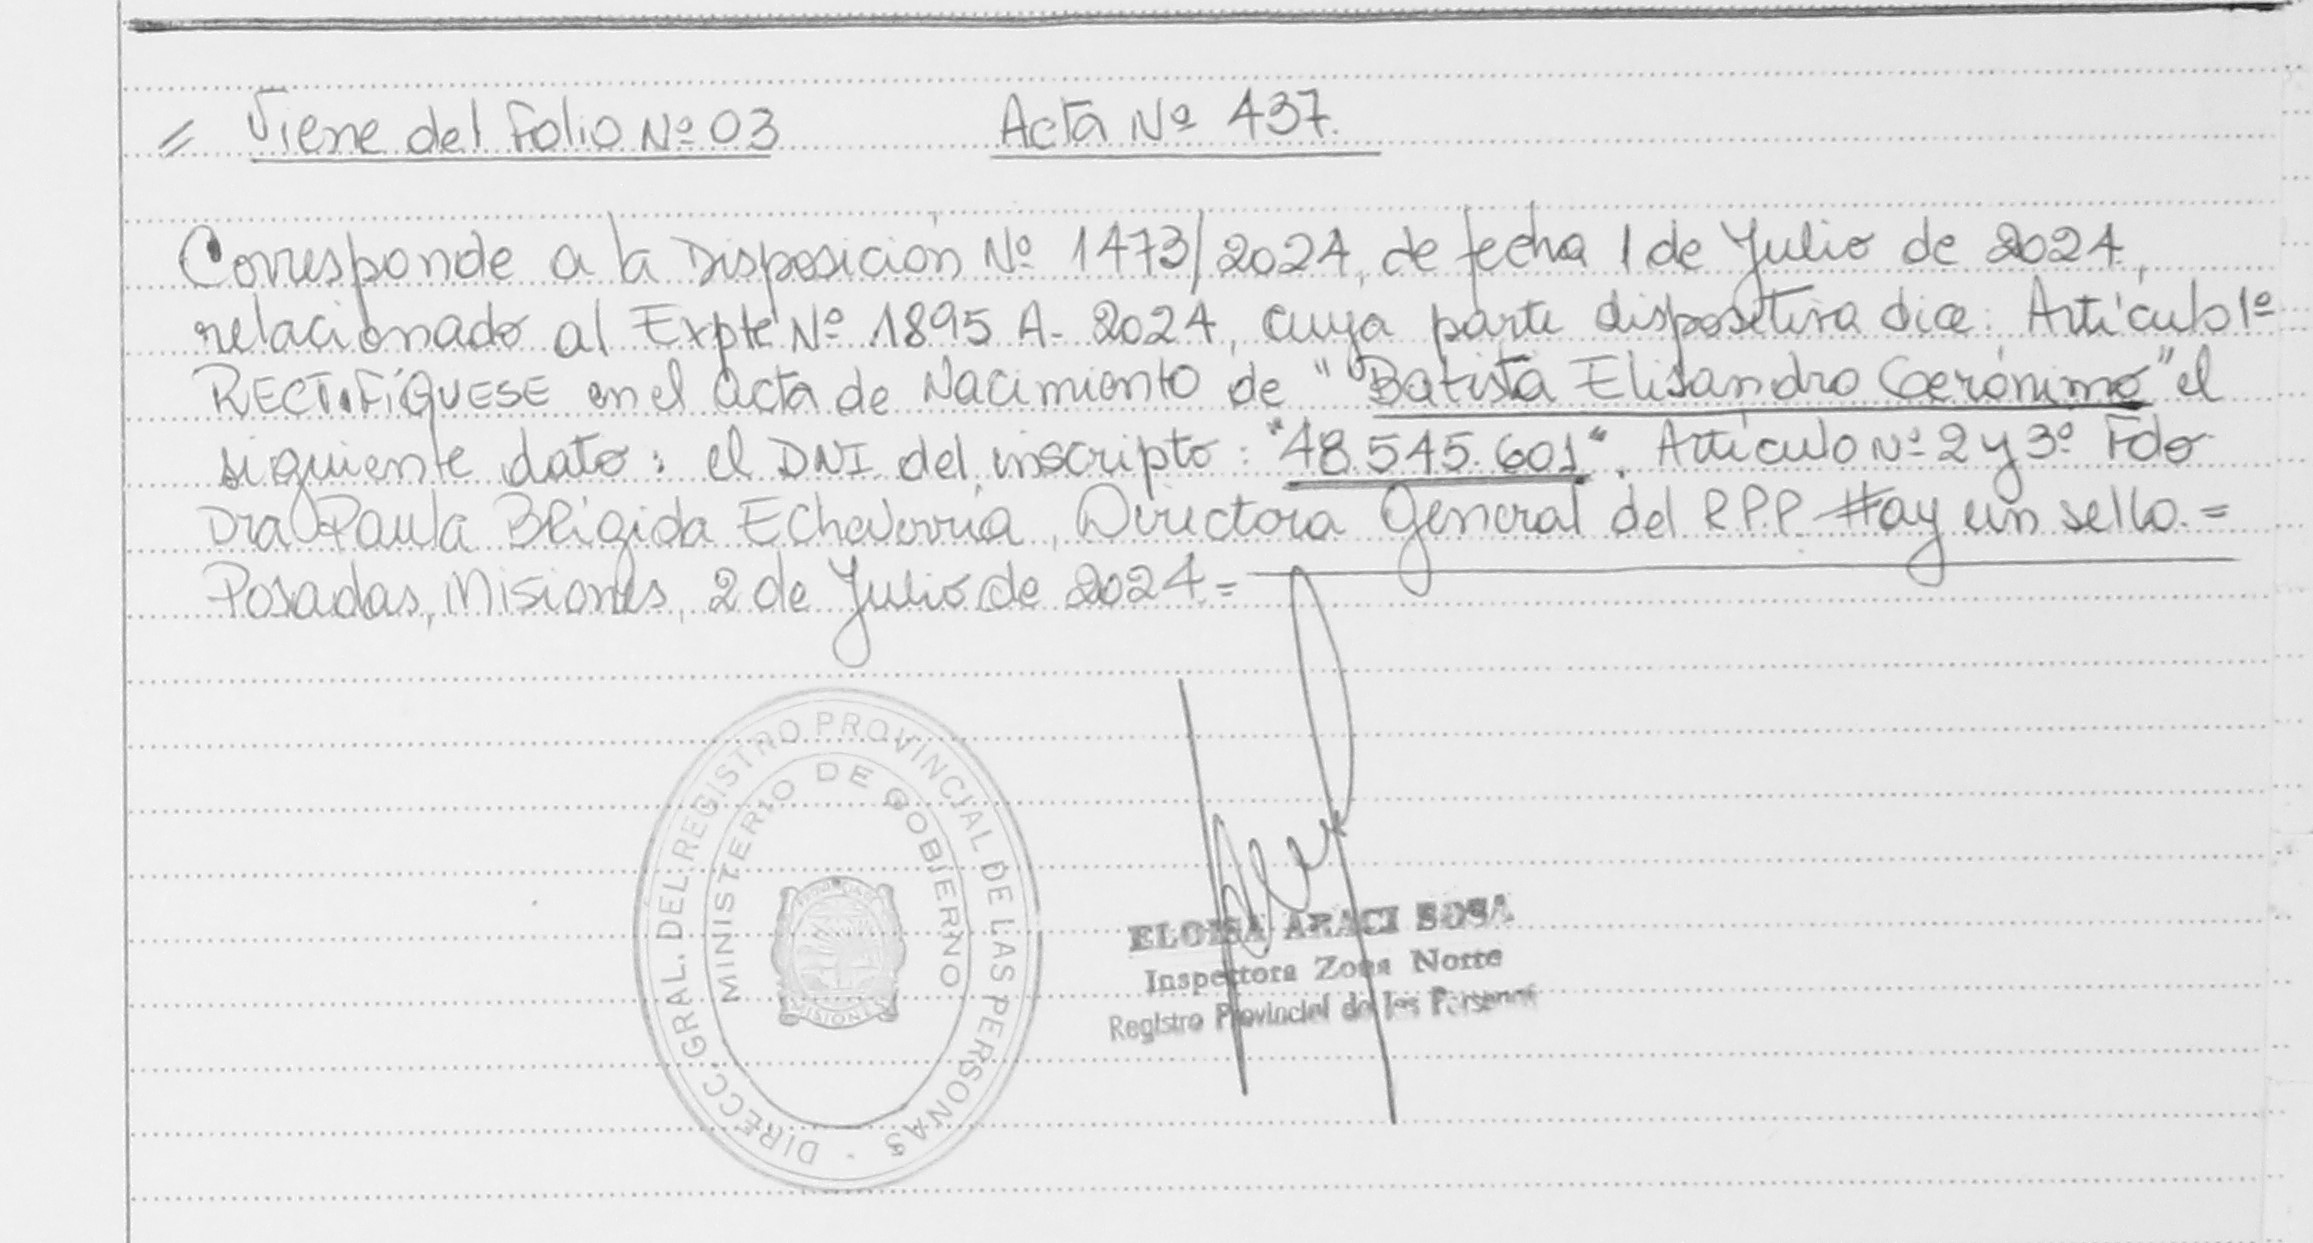 = Viene del Folio Nº 03 Acta Nº 437.
Corresponde a la Disposición Nº 1473/2024, de fecha 1 de Julio de 2024,
relacionado al Expte Nº 1895 A- 2024, cuya parte dispositiva dice: Artículo 1º
RECTIFÍQUESE en el acta de Nacimiento de "Batista Elisandro Gerónimo" el
siguiente dato: el DNI del inscripto: "48.545.601". Artículo Nº 2 y 3º Fdo
Dra Paula Brígida Echeverría, Directora General del R.P.P. Hay un sello.=
Posadas, Misiones, 2 de Julio de 2024.=
DIRECC. GRAL. DEL REGISTRO PROVINCIAL DE LAS PERSONAS
MINISTERIO DE GOBIERNO
MISIONES
ELOISA ARACI SOSA
Inspectora Zona Norte
Registro Provincial de las Personas